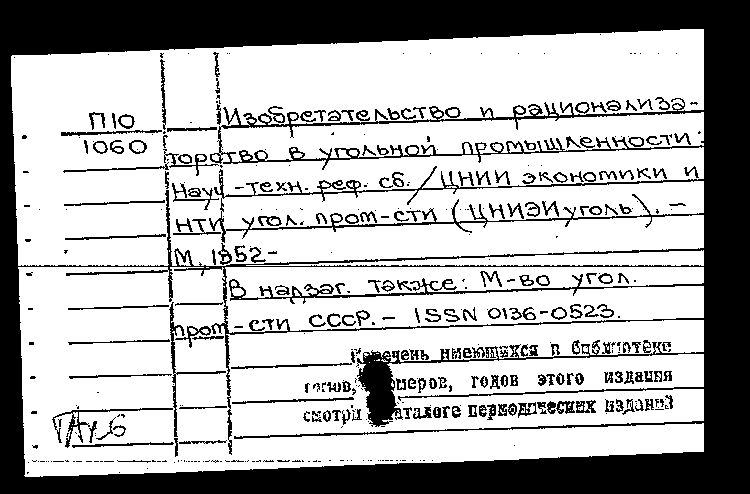 П10
1060
Изобретательство и рационализа-
торство в угольной промышленности:
Науч.-техн. реф. сб. / ЦНИИ экономики и
НТИ угол. пром-сти (ЦНИЭИуголь). –
М., 1952-
В надзаг. также: М-во угол.
пром-сти СССР. – ISSN 0136-0523.
Перечень имеющихся в библиотеке
томов, номеров, годов этого издания
смотри в каталоге периодических изданий